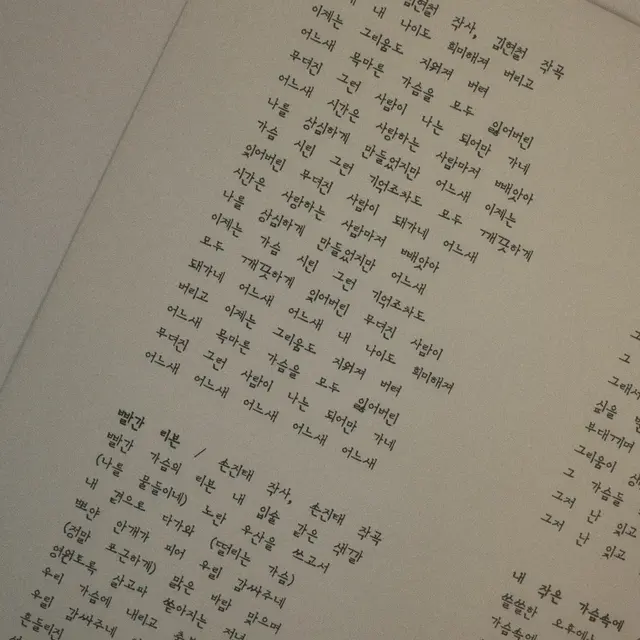 김현철 작사, 김현철 작곡
내 나이도 희미해져 버리고
이제는 그리움도 지워져 버려
어느새 목마른 가슴을 모두 잃어버린
무뎌진 그런 사람이 나는 되어만 가네
어느새 시간은 사랑하는 사람마저 빼앗아
나를 상심하게 만들었지만 어느새 이제는
가슴 시린 그런 기억조차도 모두 깨끗하게
잊어버린 무뎌진 사람이 돼가네 어느새
시간은 사랑하는 사람마저 빼앗아
나를 상심하게 만들었지만 어느새
이제는 가슴 시린 그런 기억조차도
모두 깨끗하게 잊어버린 무뎌진 사람이
돼가네 어느새 어느새 내 나이도 희미해져
버리고 이제는 그리움도 지워져 버려
어느새 목마른 가슴을 모두 잃어버린
무뎌진 그런 사람이 나는 되어만 가네
어느새 어느새 어느새 어느새 어느새
빨간 리본 / 손진태 작사, 손진태 작곡
빨간 가슴의 리본 내 입술 같은 색깔
(나를 물들이네) 노란 우산을 쓰고서
내 곁으로 다가와 (떨리는 가슴)
뽀얀 안개가 피어 우릴 감싸주네
(정말 포근하게) 맑은 비밤 맞으며
영원토록 살고파 쏟아지는 저녁
우리 가슴에 내리고
우릴 감싸주네
흔들리지
그
그
그래서
싫을
부대끼며
그리움이
그 가슴들
그저 난 잊고
그저 난 잊고
내 작은 가슴속에
쓸쓸한 오후에
가슴속에